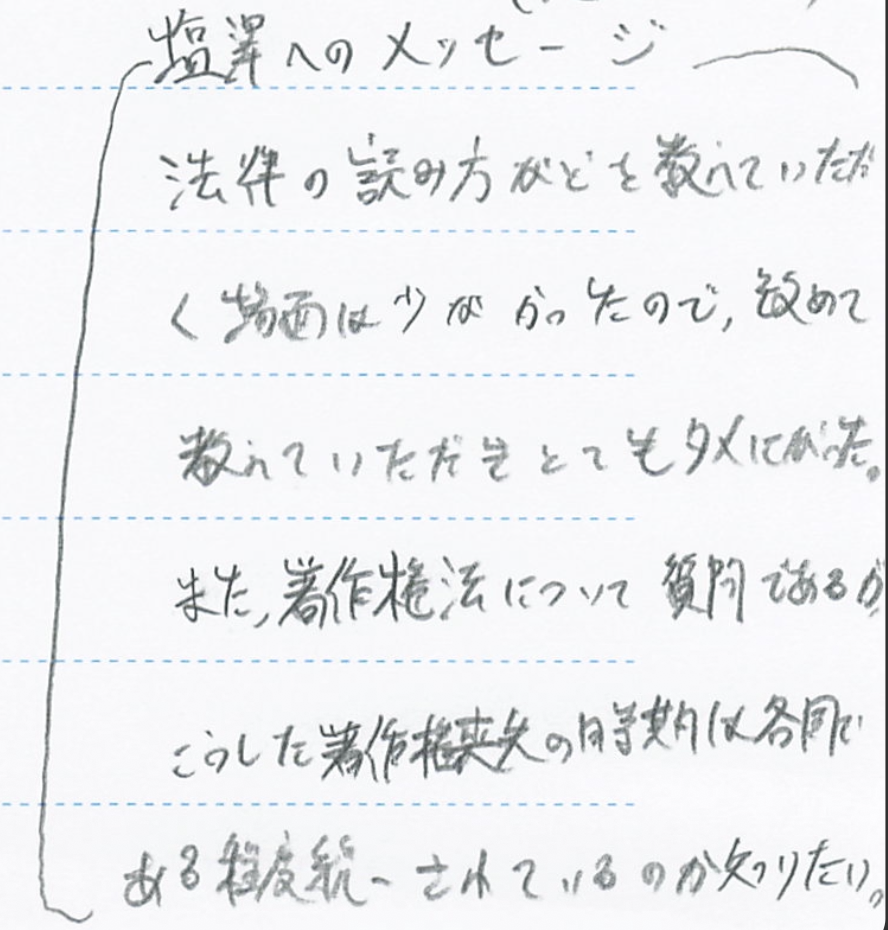 塩澤へのメッセージ
法律の読み方などを教えていただ
く場面は少なかったので，改めて
教えていただきとてもタメになった。
また，著作権法について質問であるが
こうした著作権喪失の時期は各国で
ある程度統一されているのか知りたい。